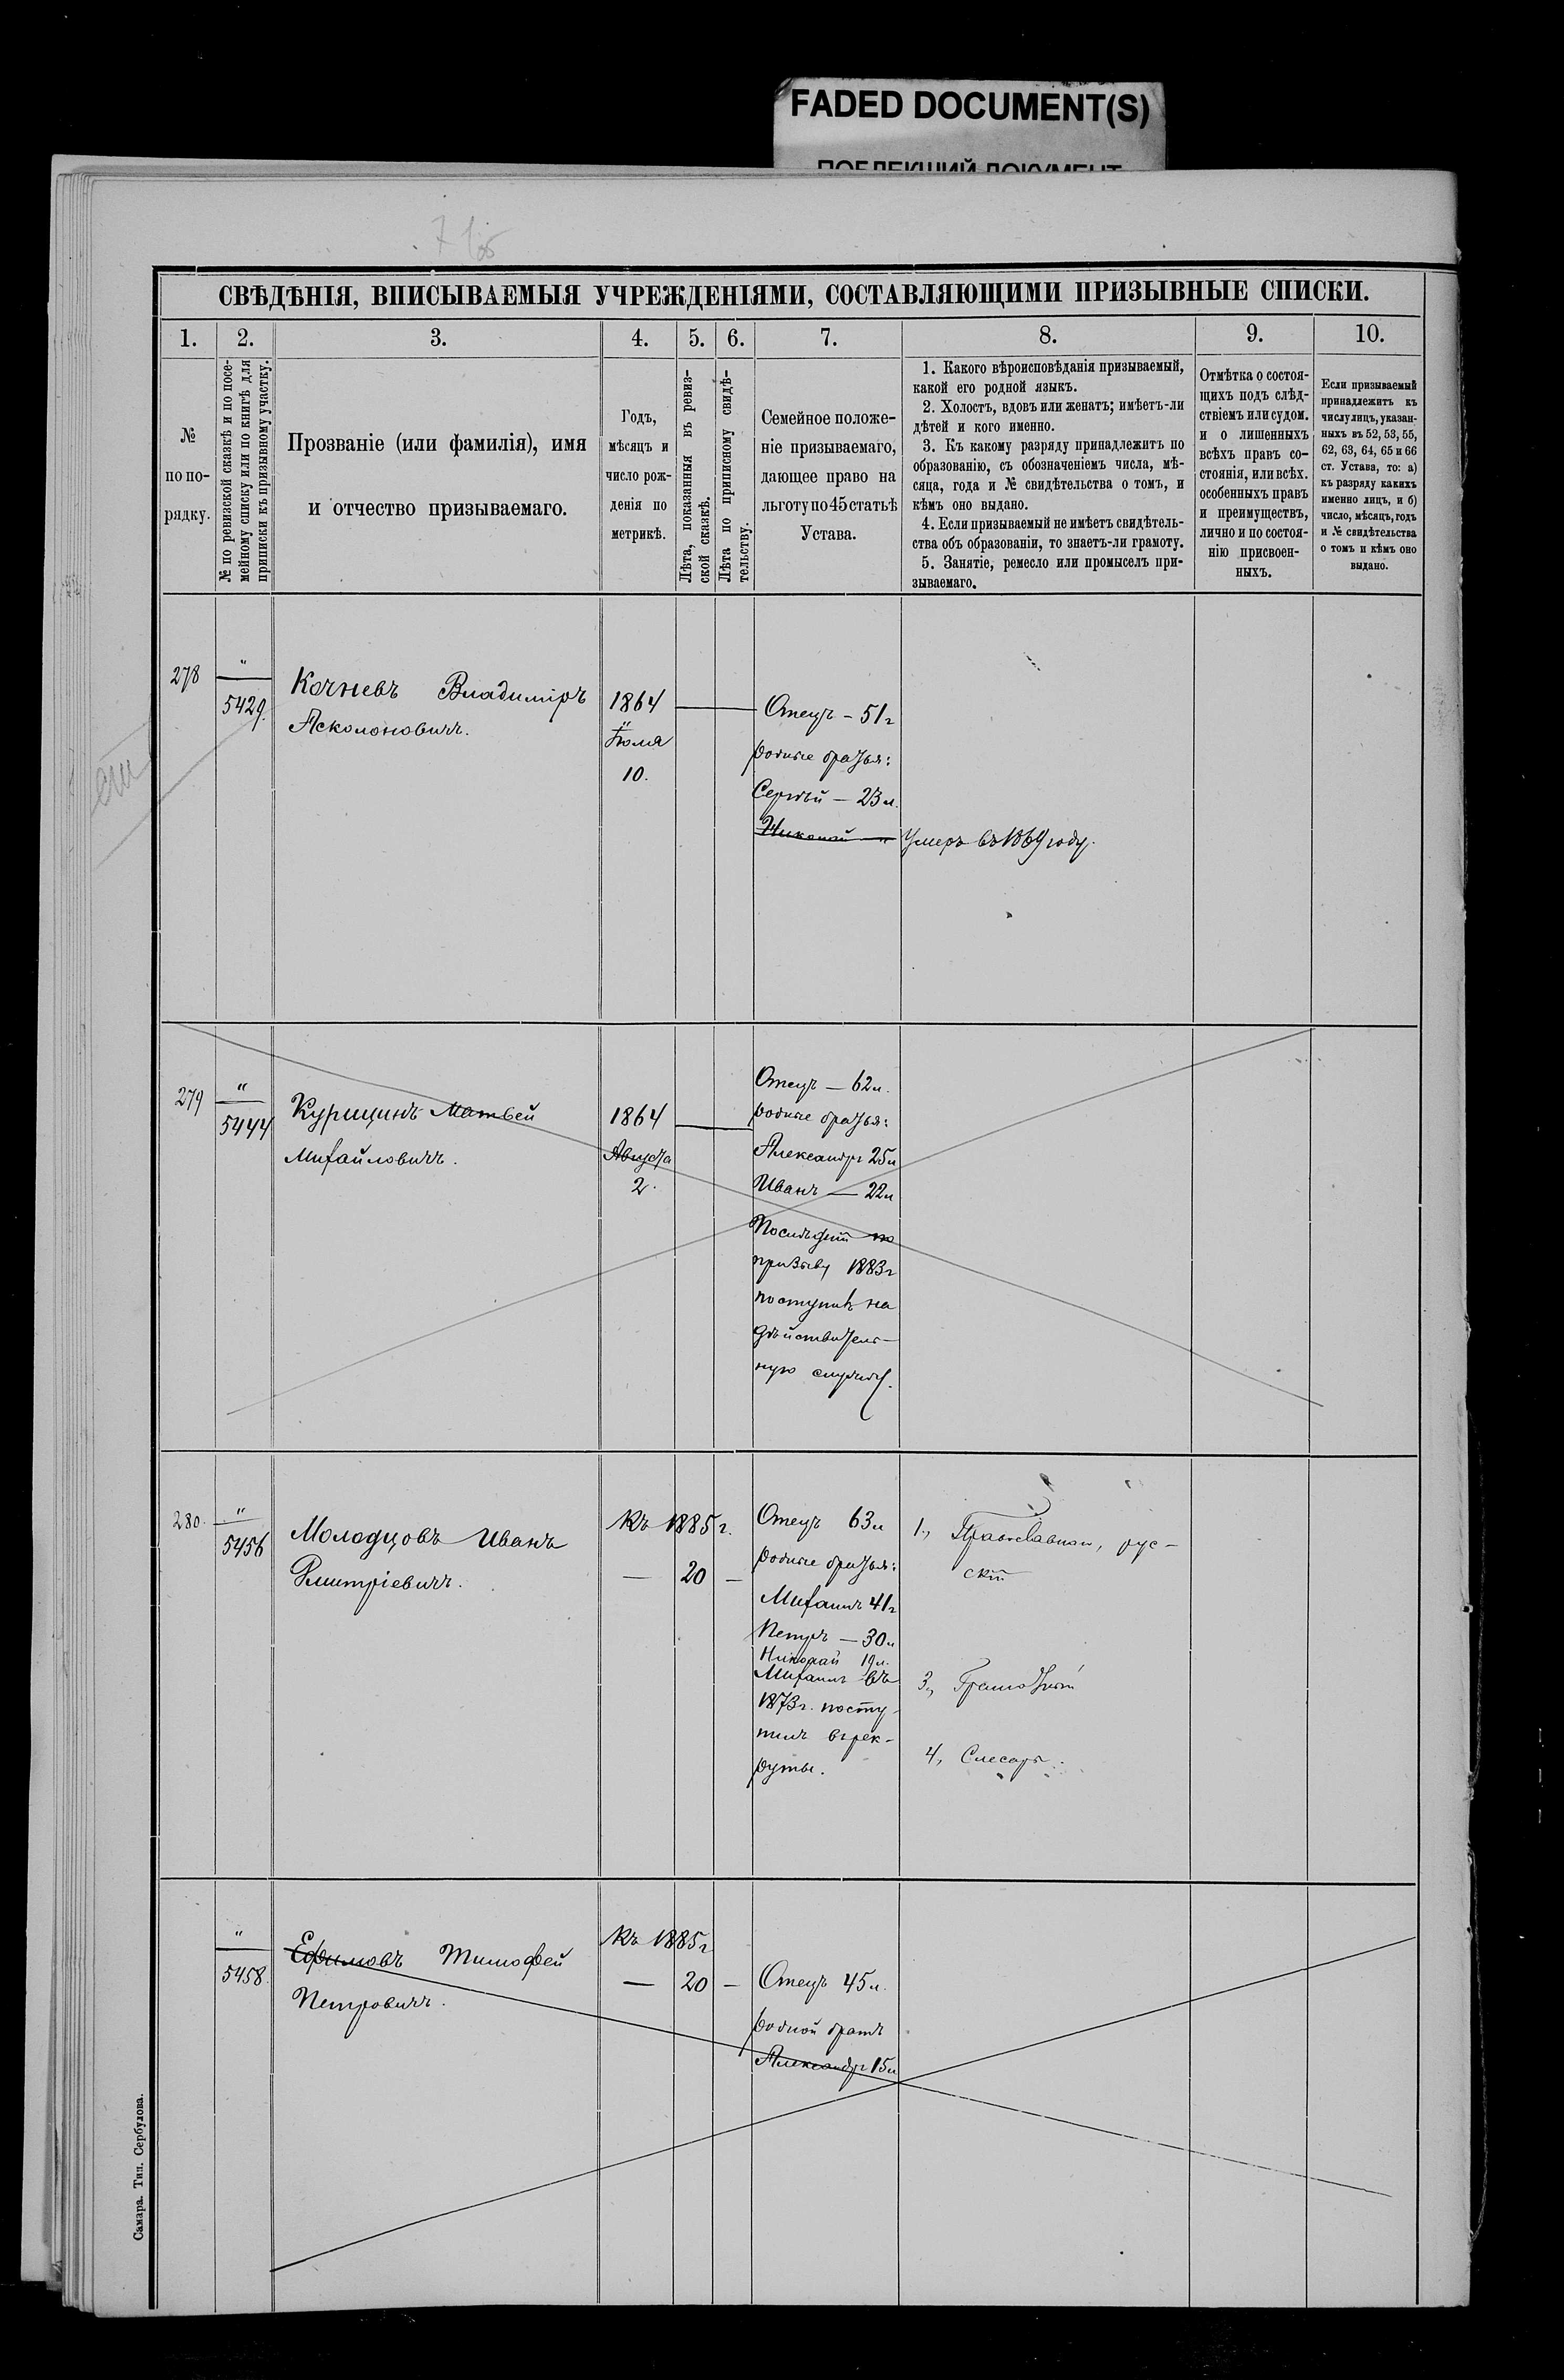 FADED DOCUMENT(S)
ПОБЛЕКШИЙ ДОКУМЕНТ
СВѢДѢНІЯ, ВПИСЫВАЕМЫЯ УЧРЕЖДЕНІЯМИ, СОСТАВЛЯЮЩИМИ ПРИЗЫВНЫЕ СПИСКИ.
1.
№
по по-
рядку.
2.
№ по ревизской сказкѣ и по посе-
мейному списку или по книгѣ для
приписки къ призывному участку.
3.
Прозваніе (или фамилія), имя
и отчество призываемаго.
4.
Годъ,
мѣсяцъ и
число рож-
денія по
метрикѣ.
5.
Лѣта, показанныя въ ревиз-
ской сказкѣ.
6.
Лѣта по приписному свидѣ-
тельству.
7.
Семейное положе-
ніе призываемаго,
дающее право на
льготу по 45 статьѣ
Устава.
8.
1. Какого вѣроисповѣданія призываемый,
какой его родной языкъ.
2. Холостъ, вдовъ или женатъ; имѣетъ-ли
дѣтей и кого именно.
3. Къ какому разряду принадлежитъ по
образованію, съ обозначеніемъ числа, мѣ-
сяца, года и № свидѣтельства о томъ, и
кѣмъ оно выдано.
4. Если призываемый не имѣетъ свидѣтель-
ства объ образованіи, то знаетъ-ли грамоту.
5. Занятіе, ремесло или промыселъ при-
зываемаго.
9.
Отмѣтка о состоя-
щихъ подъ слѣд-
ствіемъ или судом.
и о лишенныхъ
всѣхъ правъ со-
стоянія, или всѣх.
особенныхъ правъ
и преимуществъ,
лично и по состоя-
нію присвоен-
ныхъ.
10.
Если призываемый
принадлежитъ къ
числу лицъ, указан-
ныхъ въ 52, 53, 55,
62, 63, 64, 65 и 66
ст. Устава, то: а)
къ разряду какихъ
именно лицъ, и б)
число, мѣсяцъ, годъ
и № свидѣтельства
о томъ и кѣмъ оно
выдано.
278
"
5429.
Кочневъ Владиміръ
Асколоновичъ.
1864
Іюля
10.
Отецъ – 51 г
родные братья:
Сергѣй — 23 л.
Николай — " Умеръ въ 1869 году.
279
"
5444
Курицинъ Матвей
Михайловичъ.
1864
Августа
2.
Отецъ — 62 л.
родные братья:
Александръ 25 л
Иванъ — 22 л
Послѣдній по
призыву 1883 г
поступилъ на
дѣйствитель-
ную службу.
280.
"
5456
Молодцовъ Иванъ
Дмитріевичъ.
Къ 1885 г.
— 20 —
Отецъ 63 л
родные братья:
Михаилъ 41 г
Петръ — 30 л
Николай 19 л.
Михаилъ въ
1873 г. посту-
пилъ въ рек-
руты.
1., Православный, рус-
скій
3., Грамотный
4, Слесарь.
"
5458.
Ефимовъ Тимофей
Петровичъ.
Къ 1885 г
— 20 —
Отецъ 45 л.
родной братъ
Александръ 15 л
Самара. Тип. Сербулова.